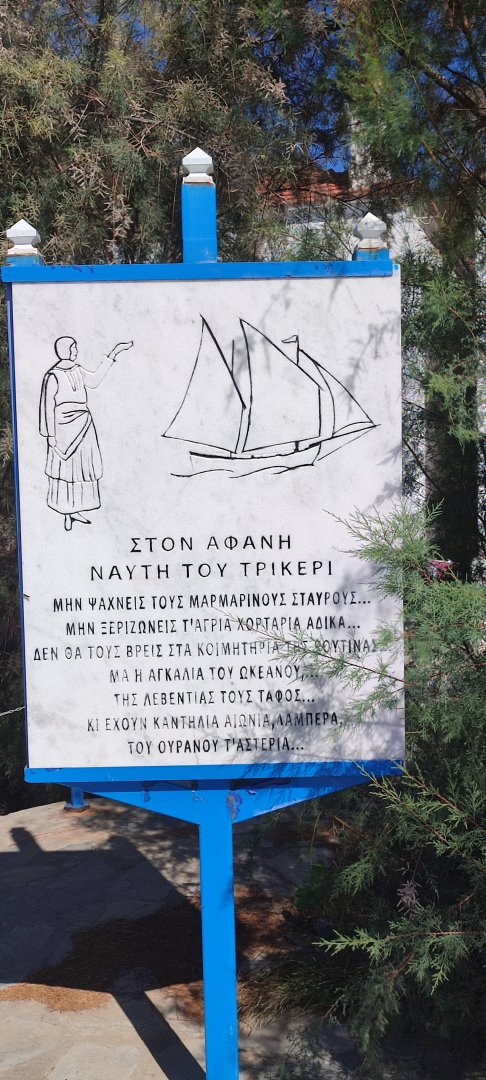 ΣΤΟΝ ΑΦΑΝΗ
ΝΑΥΤΗ ΤΟΥ ΤΡΙΚΕΡΙ
ΜΗΝ ΨΑΧΝΕΙΣ ΤΟΥΣ ΜΑΡΜΑΡΙΝΟΥΣ ΣΤΑΥΡΟΥΣ...
ΜΗΝ ΞΕΡΙΖΩΝΕΙΣ Τ'ΑΓΡΙΑ ΧΟΡΤΑΡΙΑ ΑΔΙΚΑ...
ΔΕΝ ΘΑ ΤΟΥΣ ΒΡΕΙΣ ΣΤΑ ΚΟΙΜΗΤΗΡΙΑ ΤΗΣ ΡΟΥΤΙΝΑΣ
ΜΑ Η ΑΓΚΑΛΙΑ ΤΟΥ ΩΚΕΑΝΟΥ,...
ΤΗΣ ΛΕΒΕΝΤΙΑΣ ΤΟΥΣ ΤΑΦΟΣ...
ΚΙ ΕΧΟΥΝ ΚΑΝΤΗΛΙΑ ΑΙΩΝΙΑ, ΛΑΜΠΕΡΑ,
ΤΟΥ ΟΥΡΑΝΟΥ Τ'ΑΣΤΕΡΙΑ...